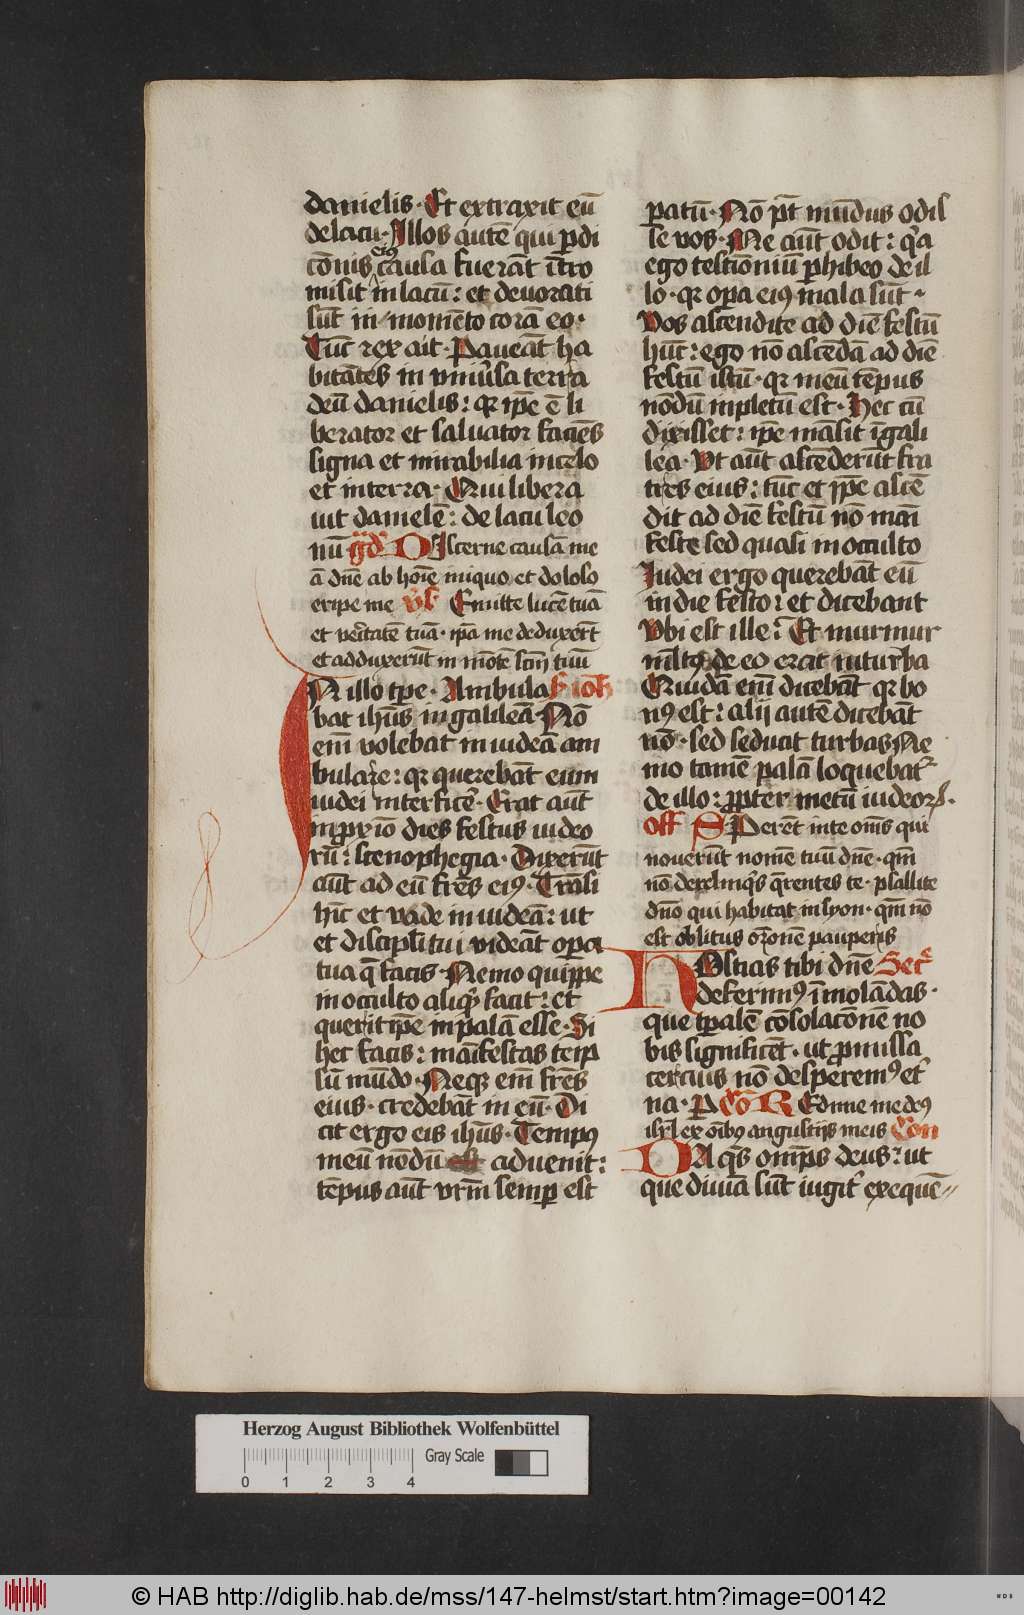 danielis · Et extraxit eū
de lacu · Illos autē qui pdi
cōnis eius causa fuerāt ītro
misit in lacū : et deuorati
sūt in momēto corā eo ·
Tūc rex ait · Paueāt ha
bitātes in vniūsa terra
deū danielis : qr ipe ē li
berator et saluator faciēs
signa et mirabilia in celo
et in terra · Qui libera
uit danielē : de lacu leo
nū gd Discerne causā me
ā dn̄e ab hoīe iniquo et doloso
eripe me vs Emitte lucē tuā
et veritatē tuā · ipa me deduxerūt
et adduxerūt in mōtē scm̄ tuū
IN illo tpe · Ambula S ioh
bat ihūs in galileā · Nō
em̄ volebat in iudeā am
bulare : qr querebāt eum
iudei interficē · Erat aūt
in proxīo dies festus iudeo
rū : scenophegia · Dixerūt
aūt ad eū frēs eiꝰ · Trāsi
hīc et vade in iudeā : ut
et discipli tui videāt opera
tua q̄ facis · Nemo quippe
in occulto aliqd facit : et
querit ipe in palā esse · Si
hec facis : maīfestas teip
sū mūdo · Neqꝫ em̄ frēs
eius · credebāt in eū · Di
cit ergo eis ihūs · Tempꝰ
meū nōdū aduenit :
tēpus aūt vrm̄ semp est
patū · Nō pt mūdus odis
se vos · Me aūt odit : qa
ego testīoniū phibeo de il
lo · qr opa eiꝰ mala sūt ·
Vos ascendite ad diē festū
hūc : ego nō ascēdā ad diē
festū istū · qr meū tēpus
nōdū inpletū est · Hec cū
dixisset : ipe māsit ī gali
lea · Vt aūt ascēderūt fra
tres eius : tūc et ipe ascē
dit ad diē festū nō mani
feste sed quasi in occulto
Iudei ergo querebāt eū
in die festo : et dicebant
Vbi est ille : Et murmur
mltꝰ de eo erat in turba
Quidā em̄ dicebāt qr bo
nꝰ est : alij autē dicebāt
nō · sed seducit turbas Ne
mo tamē palā loquebatr
de illo : propter metū iudeorꝝ ·
Off Sperēt in te om̄s qui
nouerūt nomē tuū dn̄e · qm̄
nō derelinqs qrentes te · psallite
dn̄o qui habitat in syon · qm̄ nō
est oblitus orōnē pauperis
Hostias tibi dn̄e Secr
deferimꝰ īmolādas ·
que tpalē cōsolacōnē no
bis significēt · ut promissa
cercius nō desperemꝰ et
na · P Cō Redime me deꝰ
isrl ex oībꝰ angustijs meis Con
DA qs omps deus : ut
que diuīa sūt iugit exequē
Herzog August Bibliothek Wolfenbüttel
Gray Scale
0 1 2 3 4
© HAB http://diglib.hab.de/mss/147-helmst/start.htm?image=00142